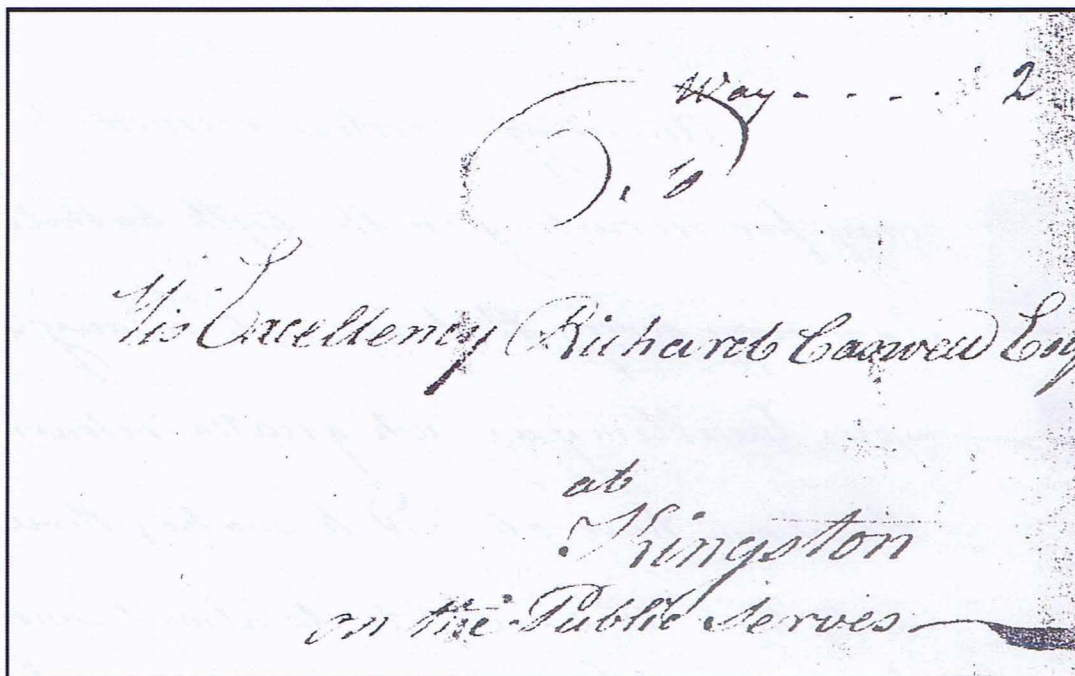 Way - - - - 2
His Excellency Richard Caswell Esq
at
Kingston
on the Public Serves